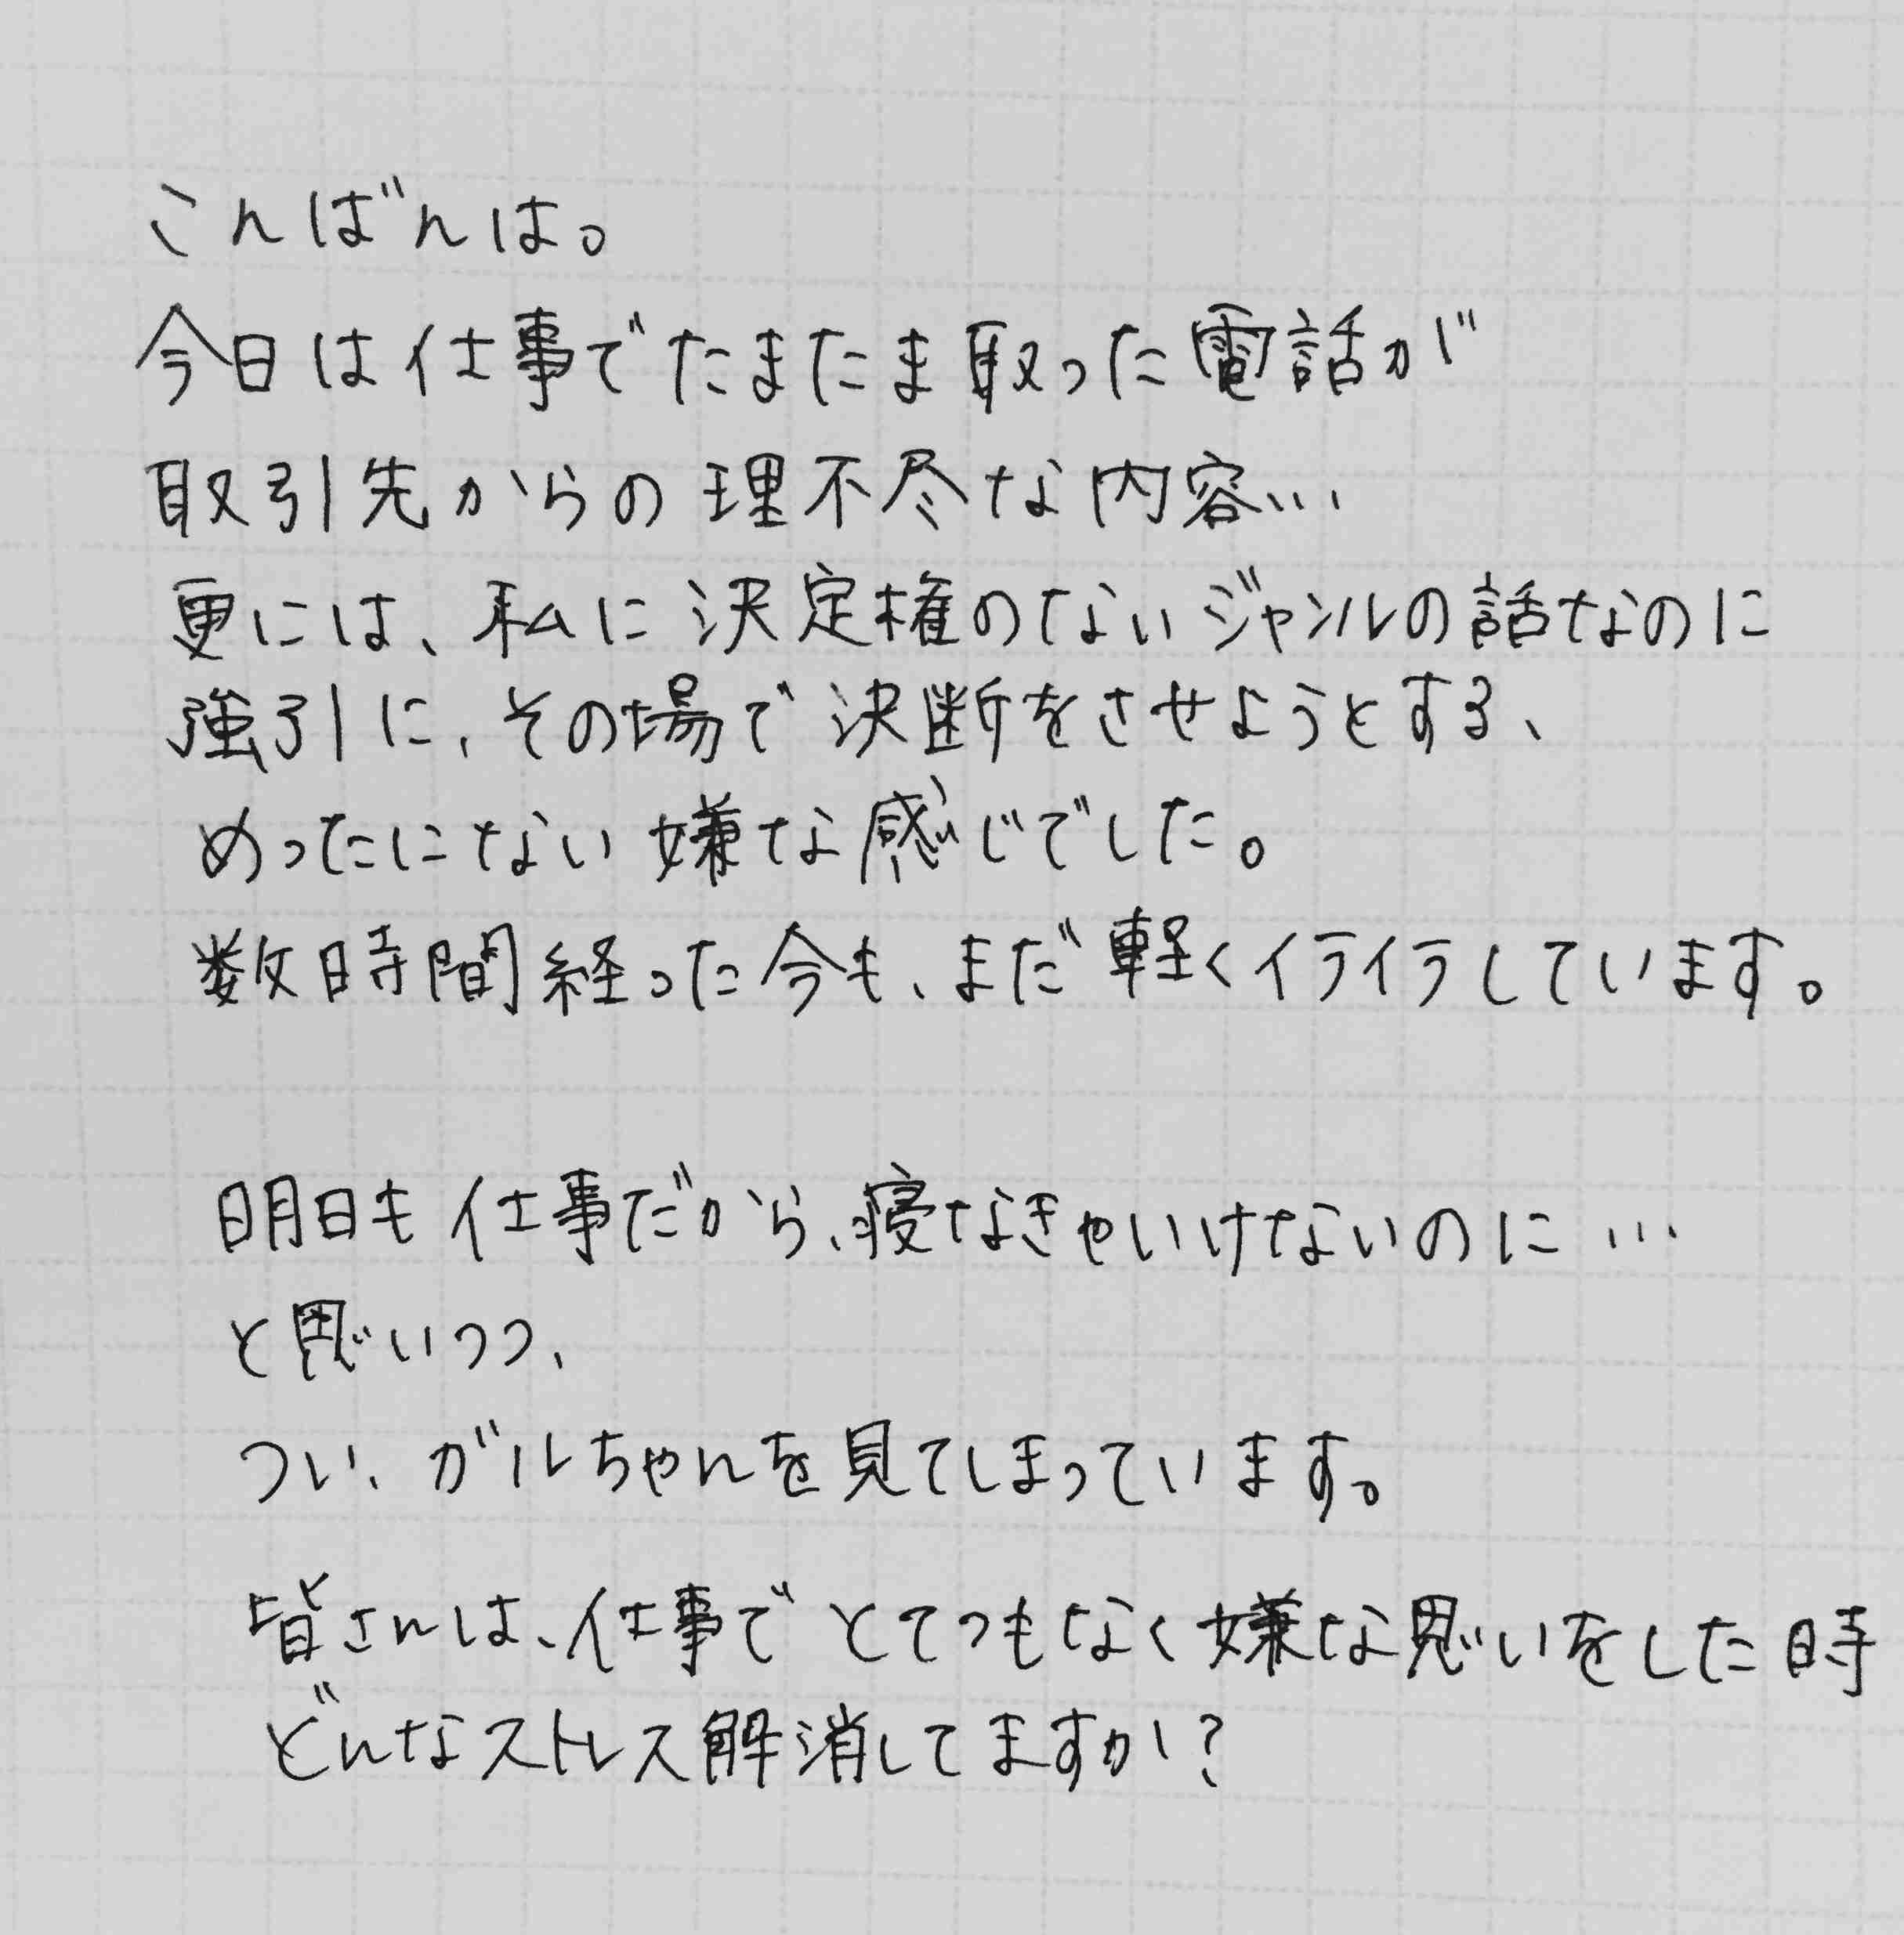 こんばんは。
今日は仕事でたまたま取った電話が
取引先からの理不尽な内容…
更には、私に決定権のないジャンルの話なのに
強引に、その場で決断をさせようとする、
めったにない嫌な感じでした。
数時間経った今も、まだ軽くイライラしています。
明日も仕事だから、寝なきゃいけないのに…
と思いつつ、
つい、ガルちゃんを見てしまっています。
皆さんは、仕事でとてつもなく嫌な思いをした時
どんなストレス解消してますか？